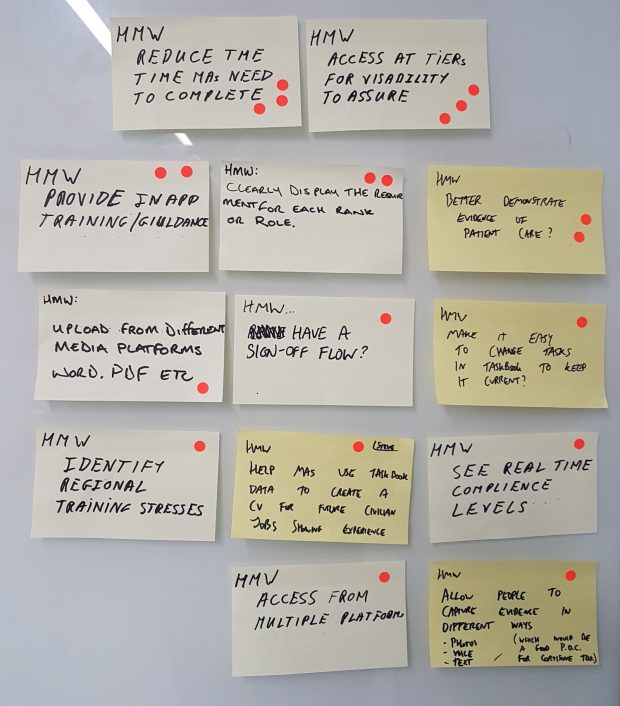 HMW
REDUCE THE
TIME MAs NEED
TO COMPLETE
HMW
ACCESS AT TIERS
FOR VISABILITY
TO ASSURE
HMW
PROVIDE IN APP
TRAINING/GIULDANCE
HMW:
CLEARLY DISPLAY THE REQUIR
MENT FOR EACH RANK
OR ROLE.
HMW
BETTER DEMONSTRATE
EVIDENCE OF
PATIENT CARE?
HMW:
UPLOAD FROM DIFFERENT
MEDIA PLATFORMS
WORD. PDF ETC
HMW...
HAVE A
SIGN-OFF FLOW?
HMW
MAKE IT EASY
TO CHANGE TASKS
IN TASKBOOK TO KEEP
IT CURRENT?
HMW
IDENTIFY
REGIONAL
TRAINING STRESSES
HMW STEVE
HELP MAS USE TASKBOOK
DATA TO CREATE A
CV FOR FUTURE CIVILIAN
JOBS SHOWING EXPERIENCE
HMW
SEE REAL TIME
COMPLIENCE
LEVELS
HMW
ACCESS FROM
MULTIPLE PLATFORM
HMW
ALLOW PEOPLE TO
CAPTURE EVIDENCE IN
DIFFERENT WAYS
- PHOTOS (WHICH WOULD BE
- VOICE A GOOD P.O.C.
- TEXT FOR